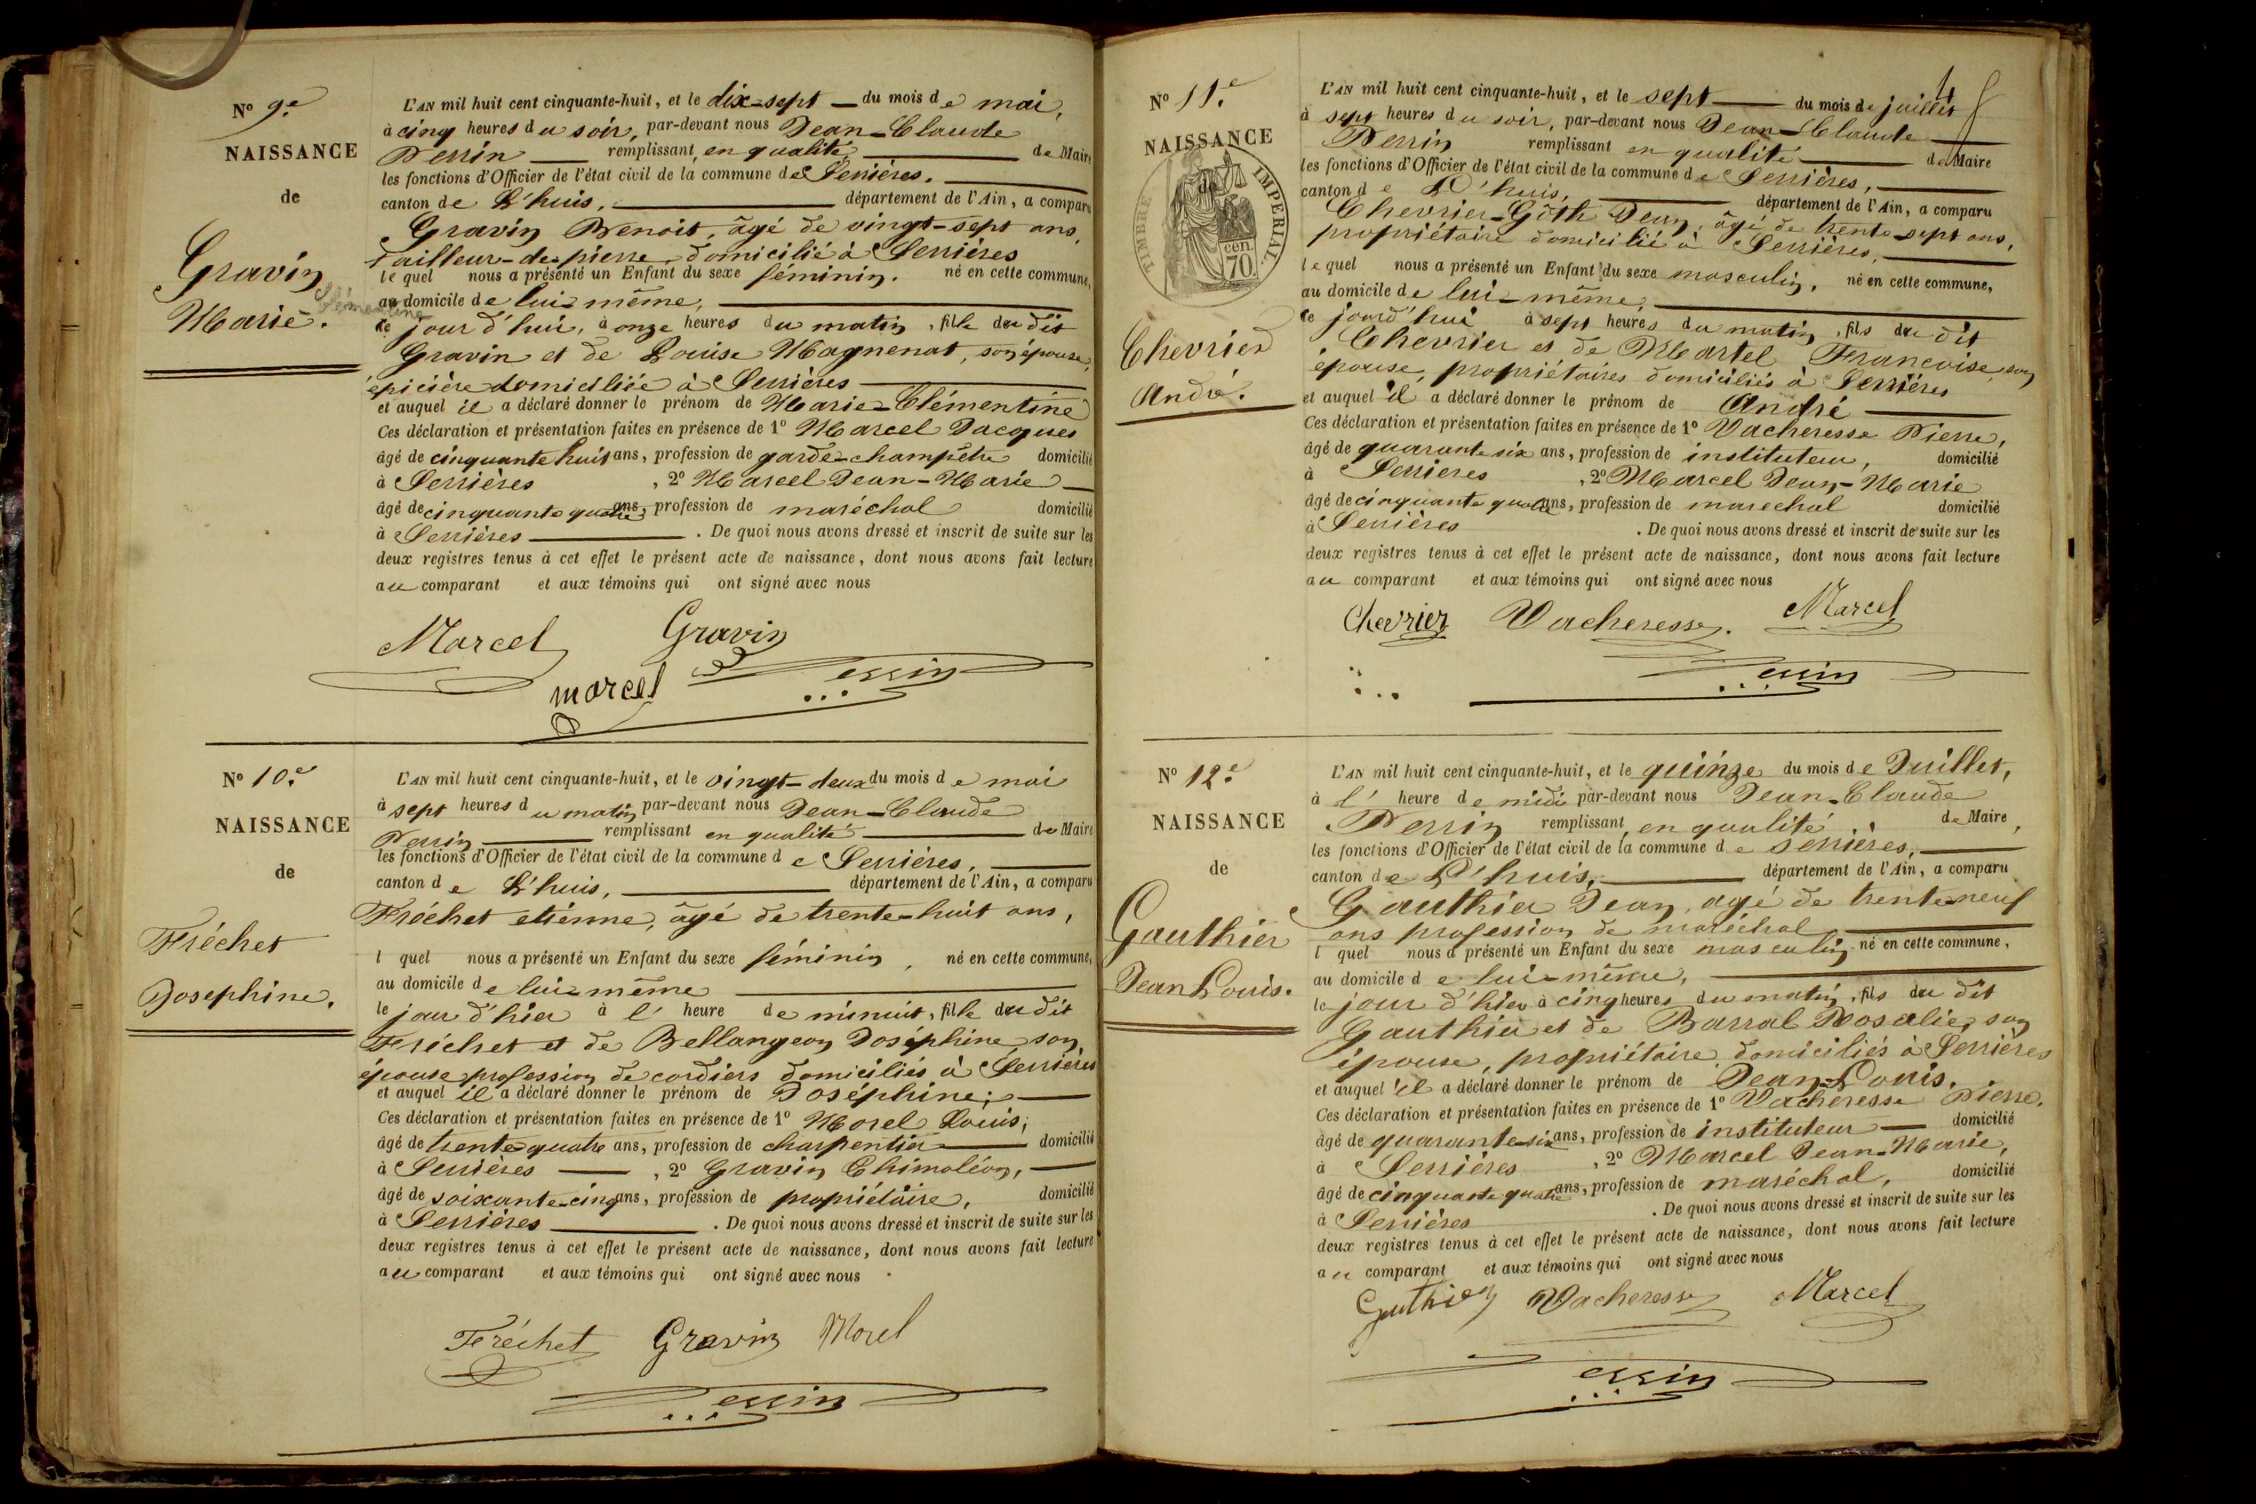 Nº 9e
NAISSANCE
de
Gravin
Clémentine
Marie.
L'AN mil huit cent cinquante-huit, et le dix-sept du mois de mai,
à cinq heures du soir, par-devant nous Jean-Claude
Perrin remplissant en qualité de Maire
les fonctions d'Officier de l'état civil de la commune de Serrières.
canton de L'huis, département de l'Ain, a comparu
Gravin Benoit, âgé de vingt-sept ans,
tailleur-de-pierre, domicilié à Serrières
lequel nous a présenté un Enfant du sexe féminin. né en cette commune,
au domicile de lui-même,
ce jour d'hui, à onze heures du matin, fille du dit
Gravin et de Louise Magnenat, son épouse,
épicière domiciliée à Serrières
et auquel il a déclaré donner le prénom de Marie-Clémentine
Ces déclaration et présentation faites en présence de 1º Marcel Jacques
âgé de cinquante huit ans, profession de garde-champêtre domicilié
à Serrières, 2º Marcel Jean-Marie
âgé de cinquante quatre ans, profession de maréchal domicilié
à Serrières. De quoi nous avons dressé et inscrit de suite sur les
deux registres tenus à cet effet le présent acte de naissance, dont nous avons fait lecture
au comparant et aux témoins qui ont signé avec nous
Marcel Gravin
marcel Perrin
Nº 10e
NAISSANCE
de
Fréchet
Josephine.
L'AN mil huit cent cinquante-huit, et le vingt-deux du mois de mai
à sept heures du matin par-devant nous Jean-Claude
Perrin remplissant en qualité de Maire
les fonctions d'Officier de l'état civil de la commune de Serrières,
canton de L'huis, département de l'Ain, a comparu
Fréchet etienne, âgé de trente-huit ans,
l quel nous a présenté un Enfant du sexe féminin, né en cette commune,
au domicile de lui-même
le jour d'hier à l' heure de minuit, fille du dit
Fréchet et de Bellangeon Joséphine, son
épouse profession de cordiers domiciliés à Serrières
et auquel il a déclaré donner le prénom de Joséphine;
Ces déclaration et présentation faites en présence de 1º Morel Louis,
âgé de trente-quatre ans, profession de charpentier domicilié
à Serrières, 2º Gravin Thimoléon,
âgé de soixante-cinq ans, profession de propriétaire, domicilié
à Serrières. De quoi nous avons dressé et inscrit de suite sur les
deux registres tenus à cet effet le présent acte de naissance, dont nous avons fait lecture
au comparant et aux témoins qui ont signé avec nous
Fréchet Gravin Morel
Perrin
Nº 11e
NAISSANCE
de
TIMBRE IMPERIAL
70 cen.
Chevrier
André.
L'AN mil huit cent cinquante-huit, et le sept du mois de juillet
à sept heures du soir, par-devant nous Jean-Claude
Perrin remplissant en qualité de Maire
les fonctions d'Officier de l'état civil de la commune de Serrières,
canton de L'huis, département de l'Ain, a comparu
Chevrier-Gôth Jean, âgé de trente-sept ans,
propriétaire domicilié à Serrières,
lequel nous a présenté un Enfant du sexe masculin, né en cette commune,
au domicile de lui-même,
ce jourd'hui à sept heures du matin, fils du dit
Chevrier et de Martel Francoise, son
épouse, propriétaires domiciliés à Serrières
et auquel il a déclaré donner le prénom de André
Ces déclaration et présentation faites en présence de 1º Vacheresse Pierre,
âgé de quarante six ans, profession de instituteur, domicilié
à Serrieres, 2º Marcel Jean-Marie
âgé de cinquante quatre ans, profession de marechal domicilié
à Serrières. De quoi nous avons dressé et inscrit de suite sur les
deux registres tenus à cet effet le présent acte de naissance, dont nous avons fait lecture
au comparant et aux témoins qui ont signé avec nous
Chevrier Vacheresse. Marcel
Perrin
Nº 12e
NAISSANCE
de
Gauthier
Jean Louis.
L'AN mil huit cent cinquante-huit, et le quinze du mois de Juillet,
à l' heure de midi par-devant nous Jean-Claude
Perrin remplissant en qualité de Maire,
les fonctions d'Officier de l'état civil de la commune de serrières,
canton de L'huis, département de l'Ain, a comparu
Gauthier Jean, agé de trente-neuf
ans profession de maréchal
l quel nous a présenté un Enfant du sexe masculin né en cette commune,
au domicile de lui-même,
le jour d'hier à cinq heures du matin, fils du dit
Gauthier et de Barral Rosalie, son
épouse, propriétaire domiciliés à Serrières
et auquel il a déclaré donner le prénom de Jean-Louis.
Ces déclaration et présentation faites en présence de 1º Vacheresse Pierre.
âgé de quarante-six ans, profession de instituteur domicilié
à Serrières, 2º Marcel Jean-Marie,
âgé de cinquante quatre ans, profession de maréchal, domicilié
à Serrières. De quoi nous avons dressé et inscrit de suite sur les
deux registres tenus à cet effet le présent acte de naissance, dont nous avons fait lecture
au comparant et aux témoins qui ont signé avec nous
Gauthier Vacheresse Marcel
Perrin